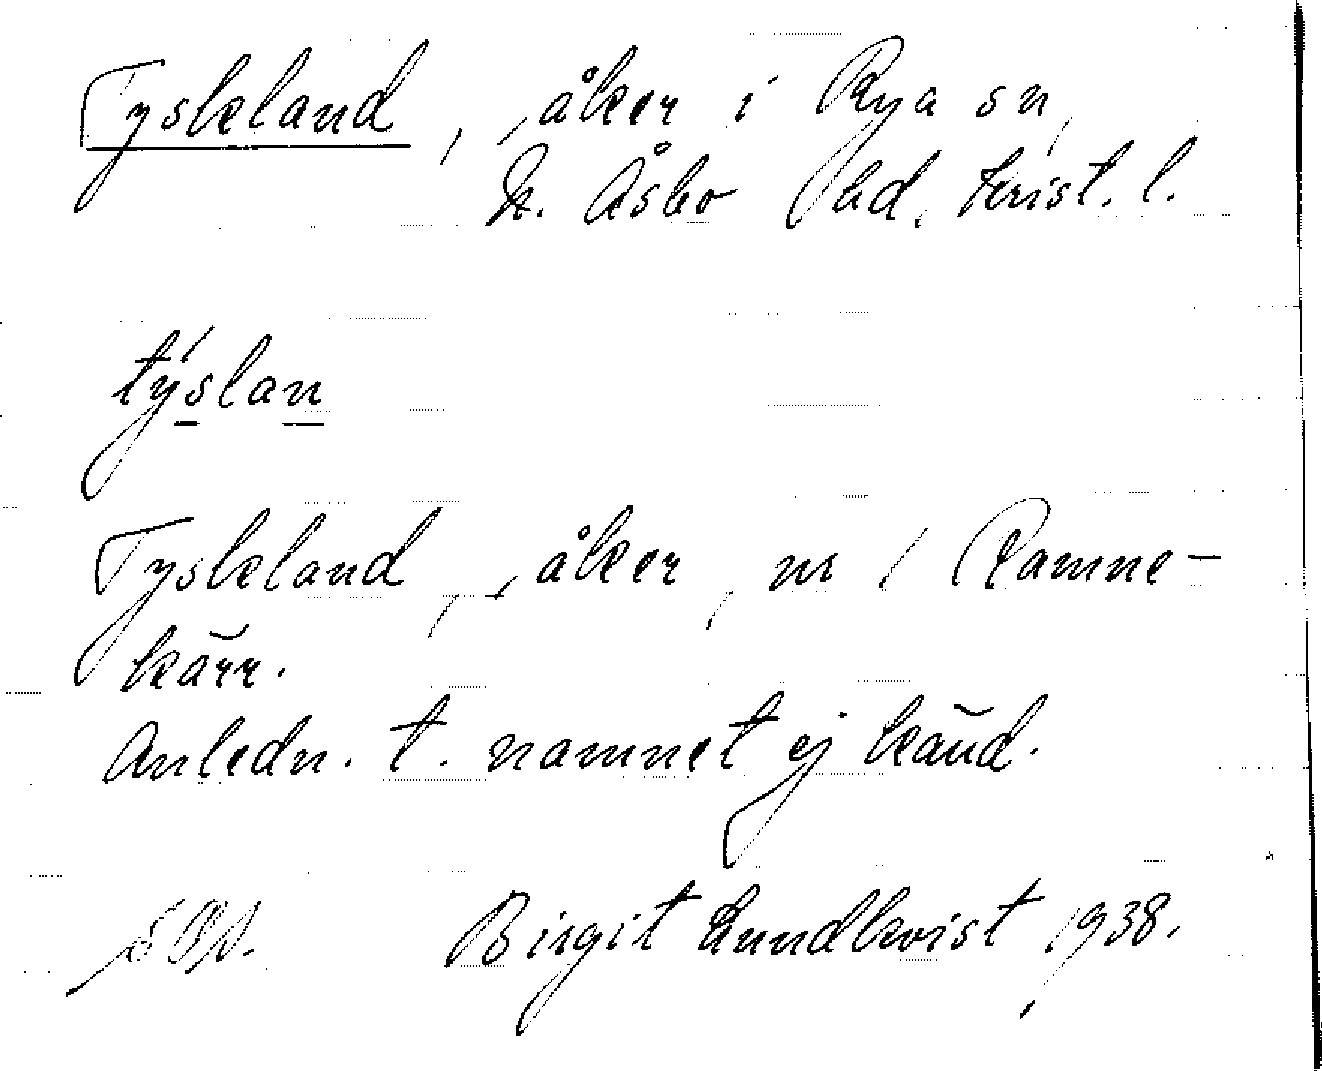 Tyskland, åker i Rya sn,
N. Åsbo hd. Krist. l.
týslan
Tyskland, åker, nr 1 Ramne-
kärr.
Anledn. t. namnet ej känd.
Birgit Lundkvist 1938.